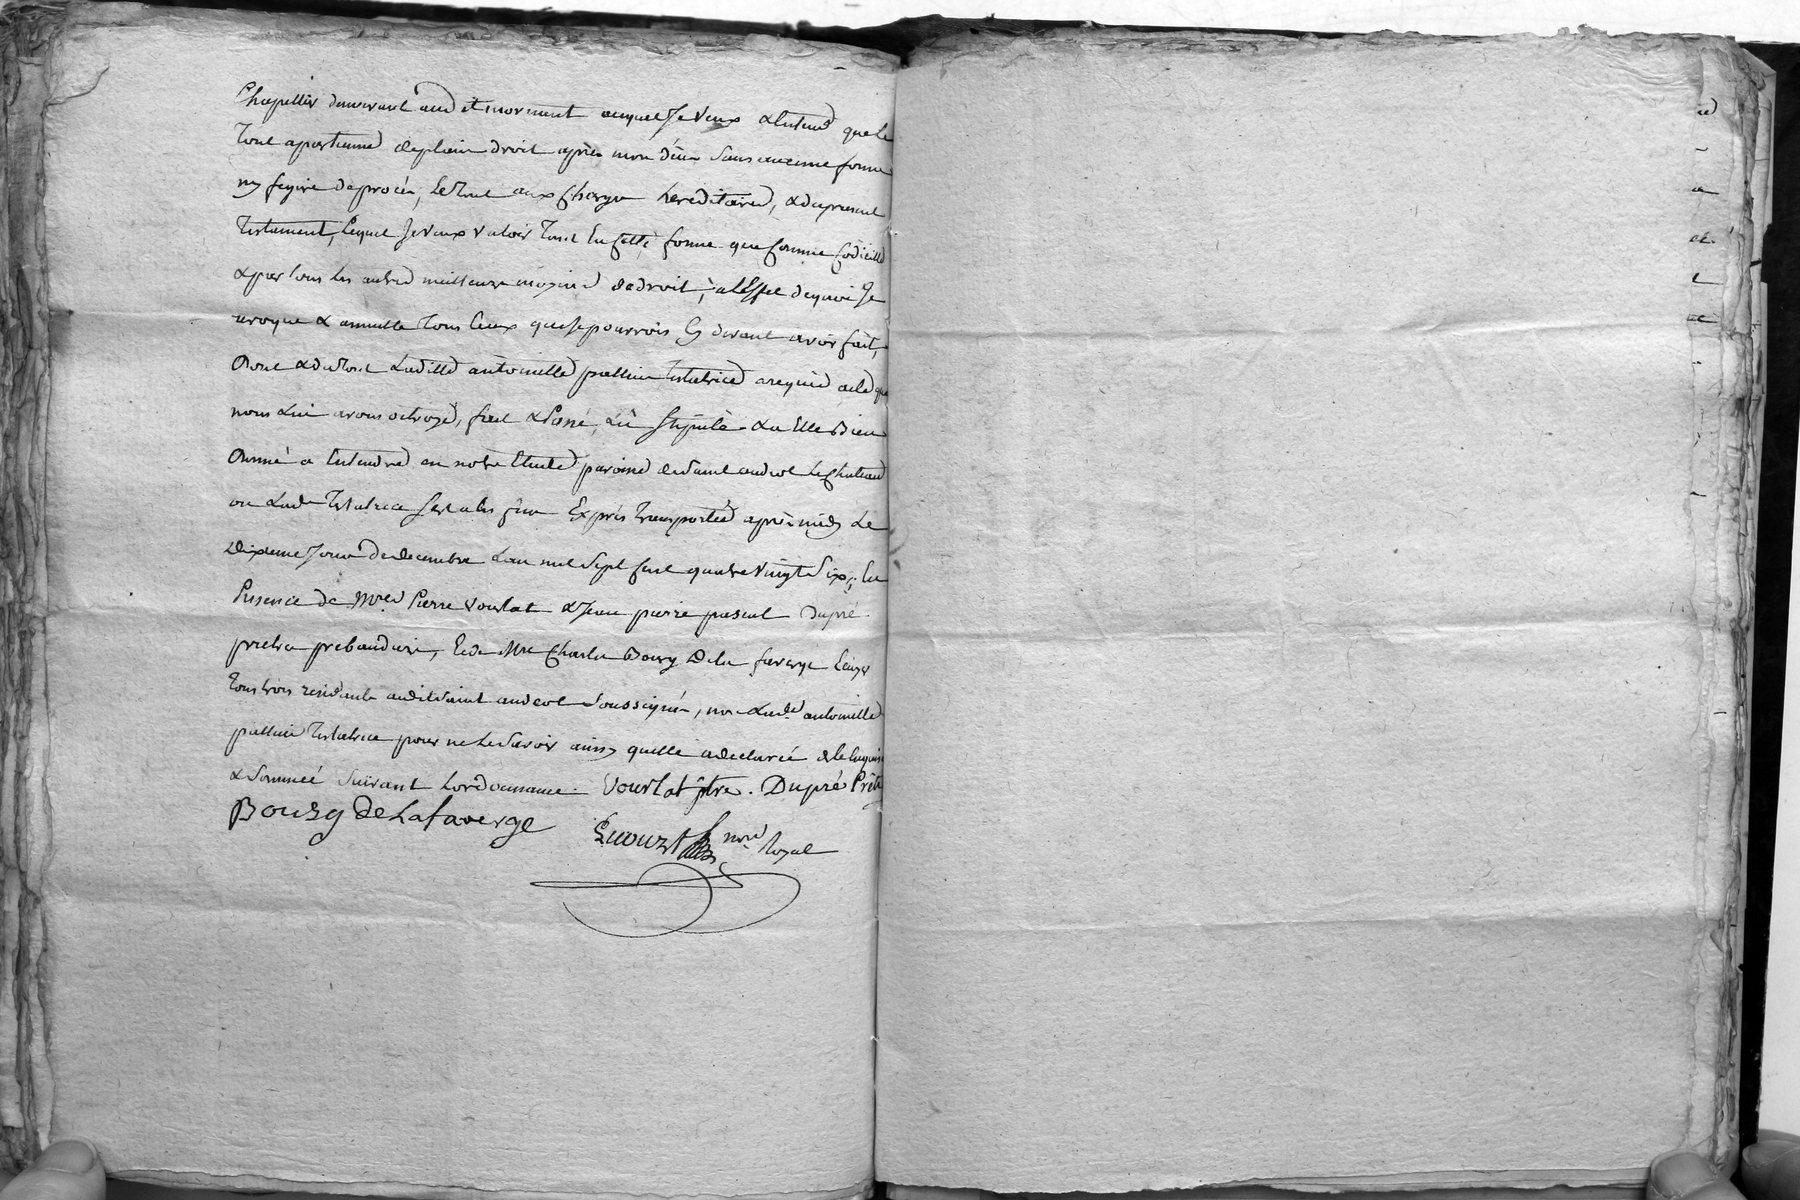 Chapellier demeurant aud et mormant auquel Je veux & entend que le
Tout apartienne de plain droit après mon décès sans aucune forme
ny figure de procès, le tout aux charges hereditaires, & du present
Testament, lequel Je veux valoir Tant En cette forme que comme codicille
& par tous les autres meilleurs moyens de droit, a l'Effet de quoi Je
revoque & annulle Tous Ceux que Je pourrois Cy devant avoir fait,
dont & du Tout Laditte antoinette testatrice a requis acte que
nous Lui avons octroyé, fait & Passé, Lû stipulé & a Elle Bien
donné a entendre en notre Etude paroisse de saint andeol le chateau
ou Lade Testatrice s'est a ces fins Exprès transportée après midy Le
dixieme Jour de decembre L'an mil sept cent quatre vingt six, En
Presence de Mres Pierre vourlat & Jean pierre pascal Dupré
pretres prebandiers, Et de Mre Charles Bourg De la faverge
tous trois residants audit saint andeol soussignés, non Lade antoinette
testatrice pour ne le savoir ainsy quelle a declaré de ce Enquise
& sommée suivant Lordonnance. Vourlat ptre. Dupré Prêtre
Bourg de Lafaverge
nore Royal